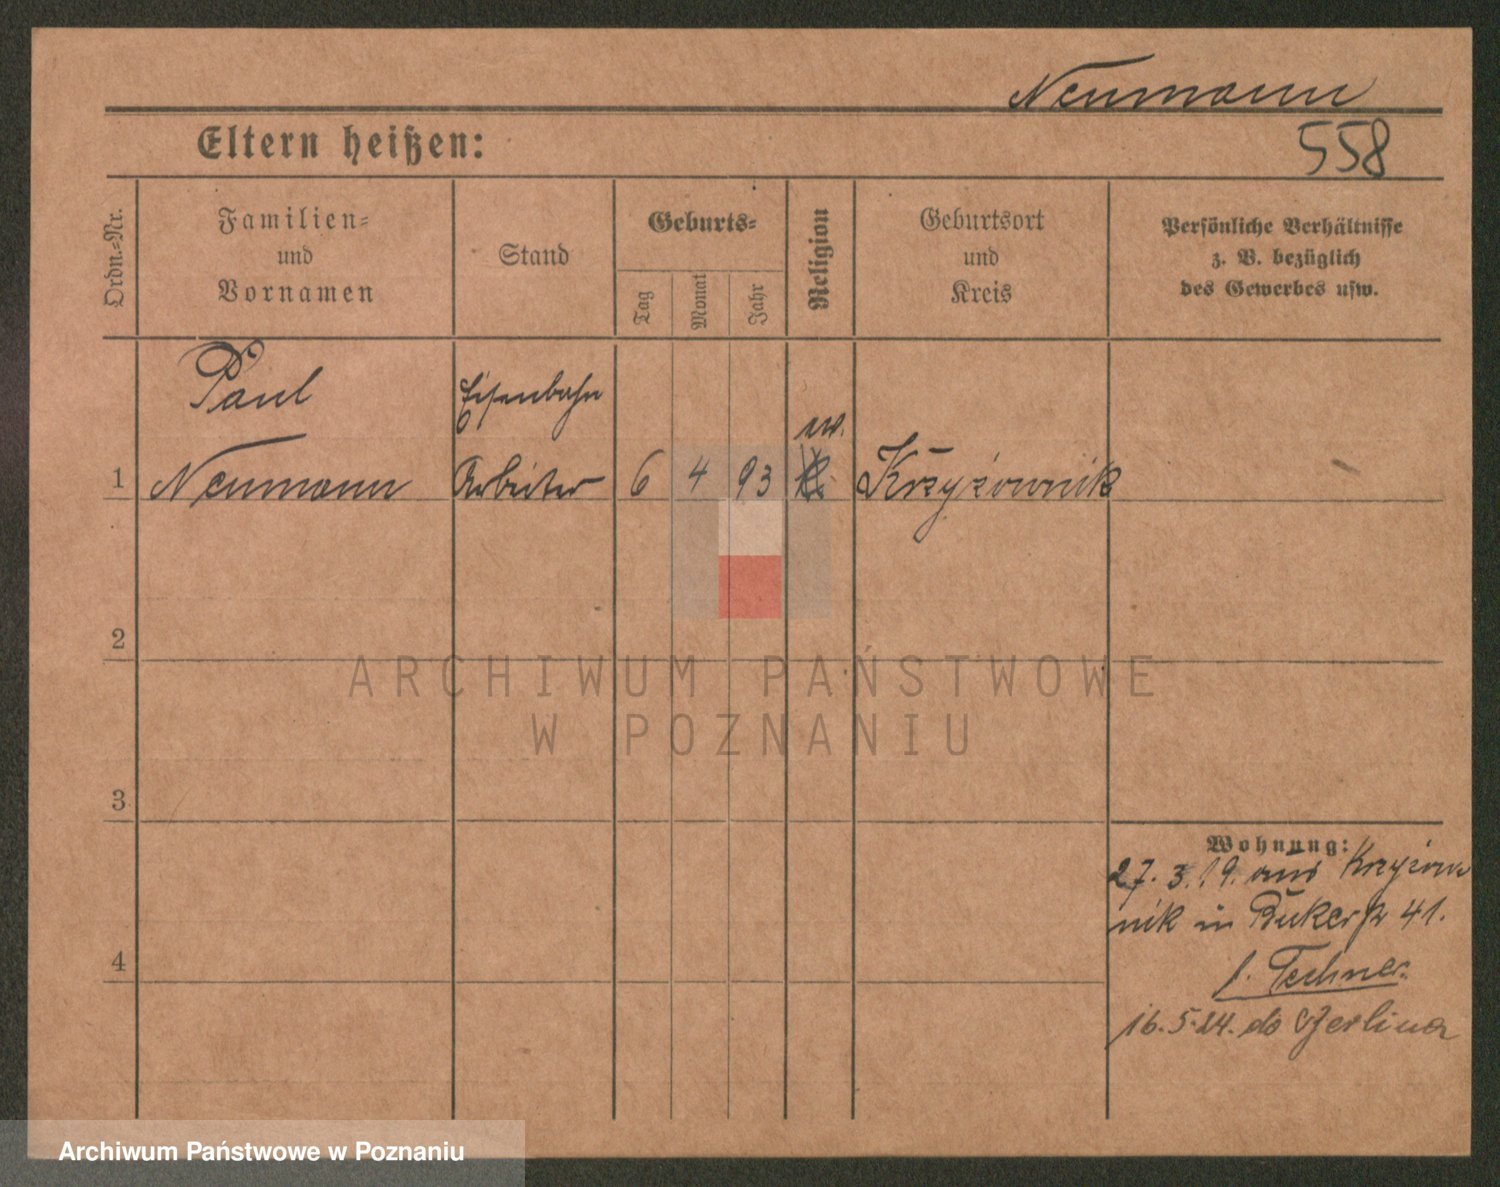 Neumann
Eltern heißen:
558
Ordn.-Nr.
Familien-
und
Vornamen
Stand
Geburts-
Tag
Monat
Jahr
Religion
Geburtsort
und
Kreis
Persönliche Verhältnisse
z. B. bezüglich
des Gewerbes usw.
Paul
Eisenbahn
ev.
1 Neumann Arbeiter 6 4 93 Krzyżownik
2
3
Wohnung:
27. 3. 19. aus Krzyżow
nik in Bukerstr 41.
4
b. Techner.
16. 5. 24. do Berlina
ARCHIWUM PAŃSTWOWE
W POZNANIU
Archiwum Państwowe w Poznaniu